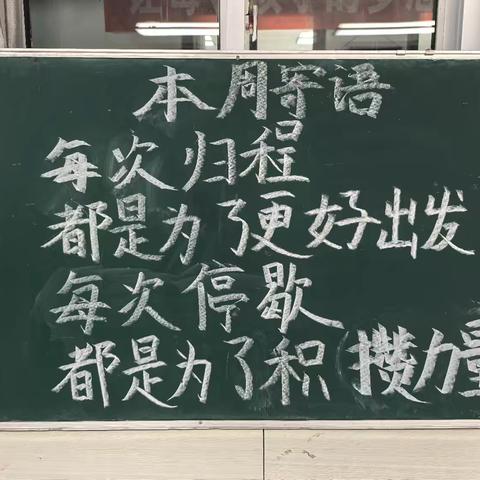 本周寄语
每次归程
都是为了更好出发
每次停歇
都是为了积攒力量